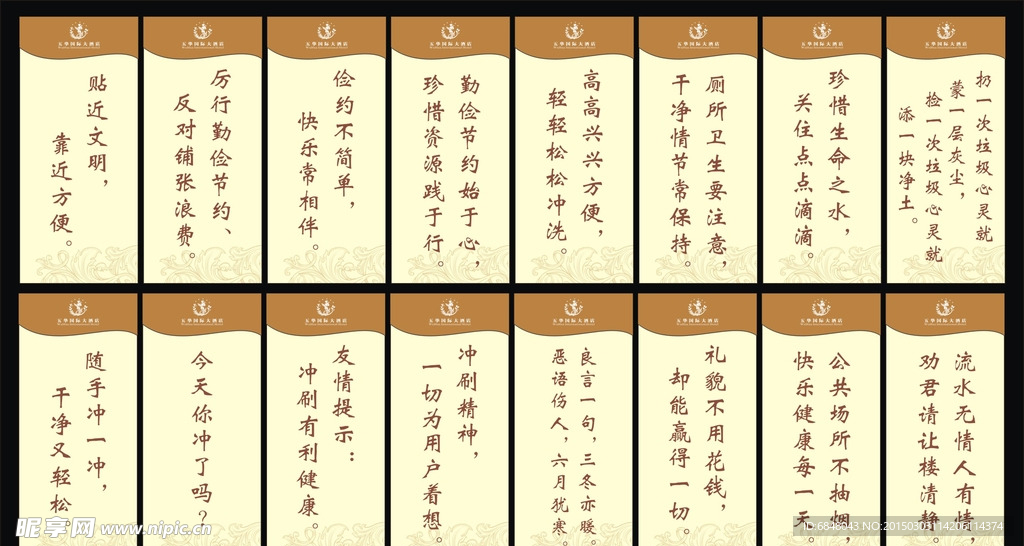 五华国际大酒店
贴近文明，
靠近方便。
五华国际大酒店
厉行勤俭节约、
反对铺张浪费。
五华国际大酒店
俭约不简单，
快乐常相伴。
五华国际大酒店
勤俭节约始于心，
珍惜资源践于行。
五华国际大酒店
高高兴兴方便，
轻轻松松冲洗。
五华国际大酒店
厕所卫生要注意，
干净情节常保持。
五华国际大酒店
珍惜生命之水，
关住点点滴滴
五华国际大酒店
扔一次垃圾心灵就
蒙一层灰尘，
捡一次垃圾心灵就
添一块净土。
五华国际大酒店
随手冲一冲，
干净又轻松。
五华国际大酒店
今天你冲了吗？
五华国际大酒店
友情提示：
冲刷有利健康。
五华国际大酒店
冲刷精神，
一切为用户着想。
五华国际大酒店
良言一句，三冬亦暖。
恶语伤人，六月犹寒。
五华国际大酒店
礼貌不用花钱，
却能赢得一切。
五华国际大酒店
公共场所不抽烟，
快乐健康每一天。
五华国际大酒店
流水无情人有情，
劝君请让楼清静。
昵享网 www.nipic.cn
ID:6848043 NO:20150305114206114374